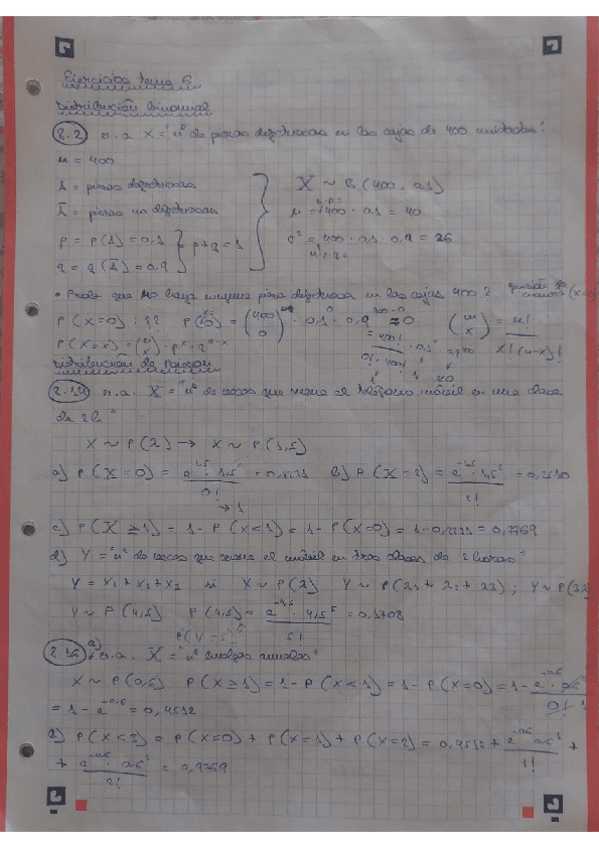 Ejercicios tema 6
Distribución binomial
8.2 v.a X = "nº de piezas defectuosas en las cajas de 400 unidades"
n = 400
A = piezas defectuosas
Ā = piezas no defectuosas
X ~ B(400, 0,1)
p = P(A) = 0,1
q = q(Ā) = 0,9
p + q = 1
μ = 400 · 0,1 = 40
n·p =
σ² = 400 · 0,1 · 0,9 = 36
n·p·q =
• Prob que no haya ninguna pieza defectuosa en las cajas 400?
P(X=0) : ?? P(X=0) = (400 0) · 0,1⁰ · 0,9 ≈ 0
(n x) = n! / x!(n-x)!
P(X=x) = (n x) · pˣ · qⁿ⁻ˣ
= 400! / 0! · 400! · 0,1⁰
Distribución de Poisson
v.a. X = "nº de veces que suena el teléfono móvil en una clase
de 2h"
X ~ P(λ) → X ~ P(1,5)
a) P(X=0) = e^-1,5 · 1,5⁰ / 0! = 0,2231 b) P(X=2) = e^-1,5 · 1,5² / 2! = 0,2510
→ 1
c) P(X ≥ 1) = 1 - P(X<1) = 1 - P(X=0) = 1 - 0,2231 = 0,7769
d) Y = "nº de veces que suena el móvil en tres clases de 2 horas"
Y = X1 + X2 + X3 si X ~ P(λ) Y ~ P(λ1 + λ2 + λ3) ; Y ~ P(3λ)
Y ~ P(4,5) P(4,5) = · 4,5⁵ / 5! = 0,1708
P(Y=5)
a) v.a. X =
X ~ P(0,6) P(X≥1) = 1 - P(X<1) = 1 - P(X=0) = 1 - e^-0,6 · 0,6⁰ / 0! 1
= 1 - e^-0,6 = 0,4512
P(X<3) = P(X=0) + P(X=1) + P(X=2) = 0,4512 + e^-0,6 · 0,6¹ / 1! +
+ e^-0,6 · 0,6² / 2! = 0,9769